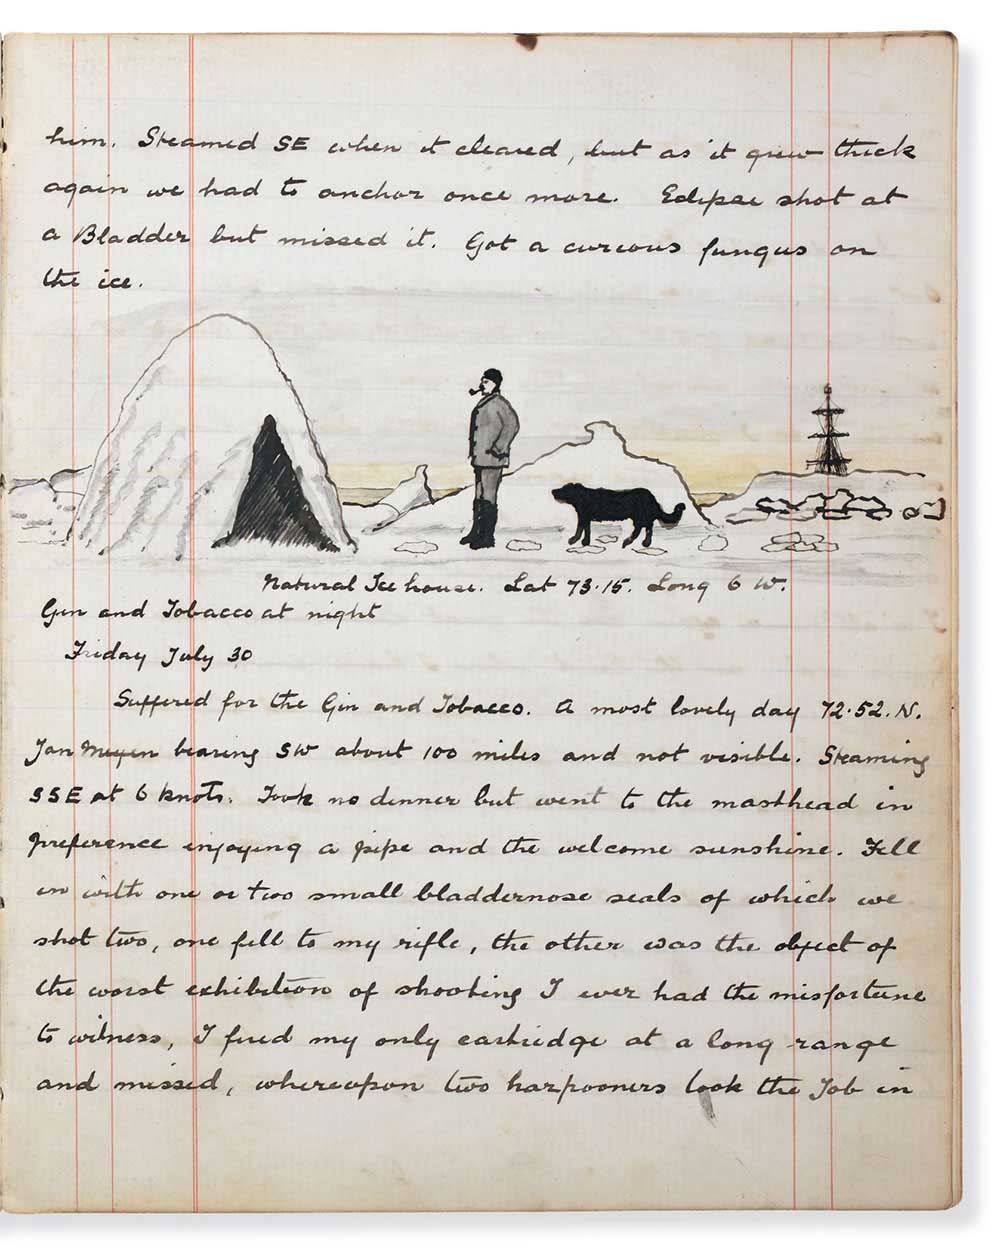 him. Steamed SE when it cleared, but as it grew thick
again we had to anchor once more. Eclipse shot at
a Bladder but missed it. Got a curious fungus on
the ice.
Natural Ice house. Lat 73.15. Long 6 W.
Gin and Tobacco at night
Friday July 30
Suffered for the Gin and Tobacco. A most lovely day 72.52.N.
Jan Meyen bearing SW about 100 miles and not visible. Steaming
SSE at 6 knots. Took no dinner but went to the masthead in
preference enjoying a pipe and the welcome sunshine. Fell
in with one or two small bladdernose seals of which we
shot two, one fell to my rifle, the other was the object of
the worst exhibition of shooting I ever had the misfortune
to witness, I fired my only cartridge at a long range
and missed, whereupon two harpooners took the Job in